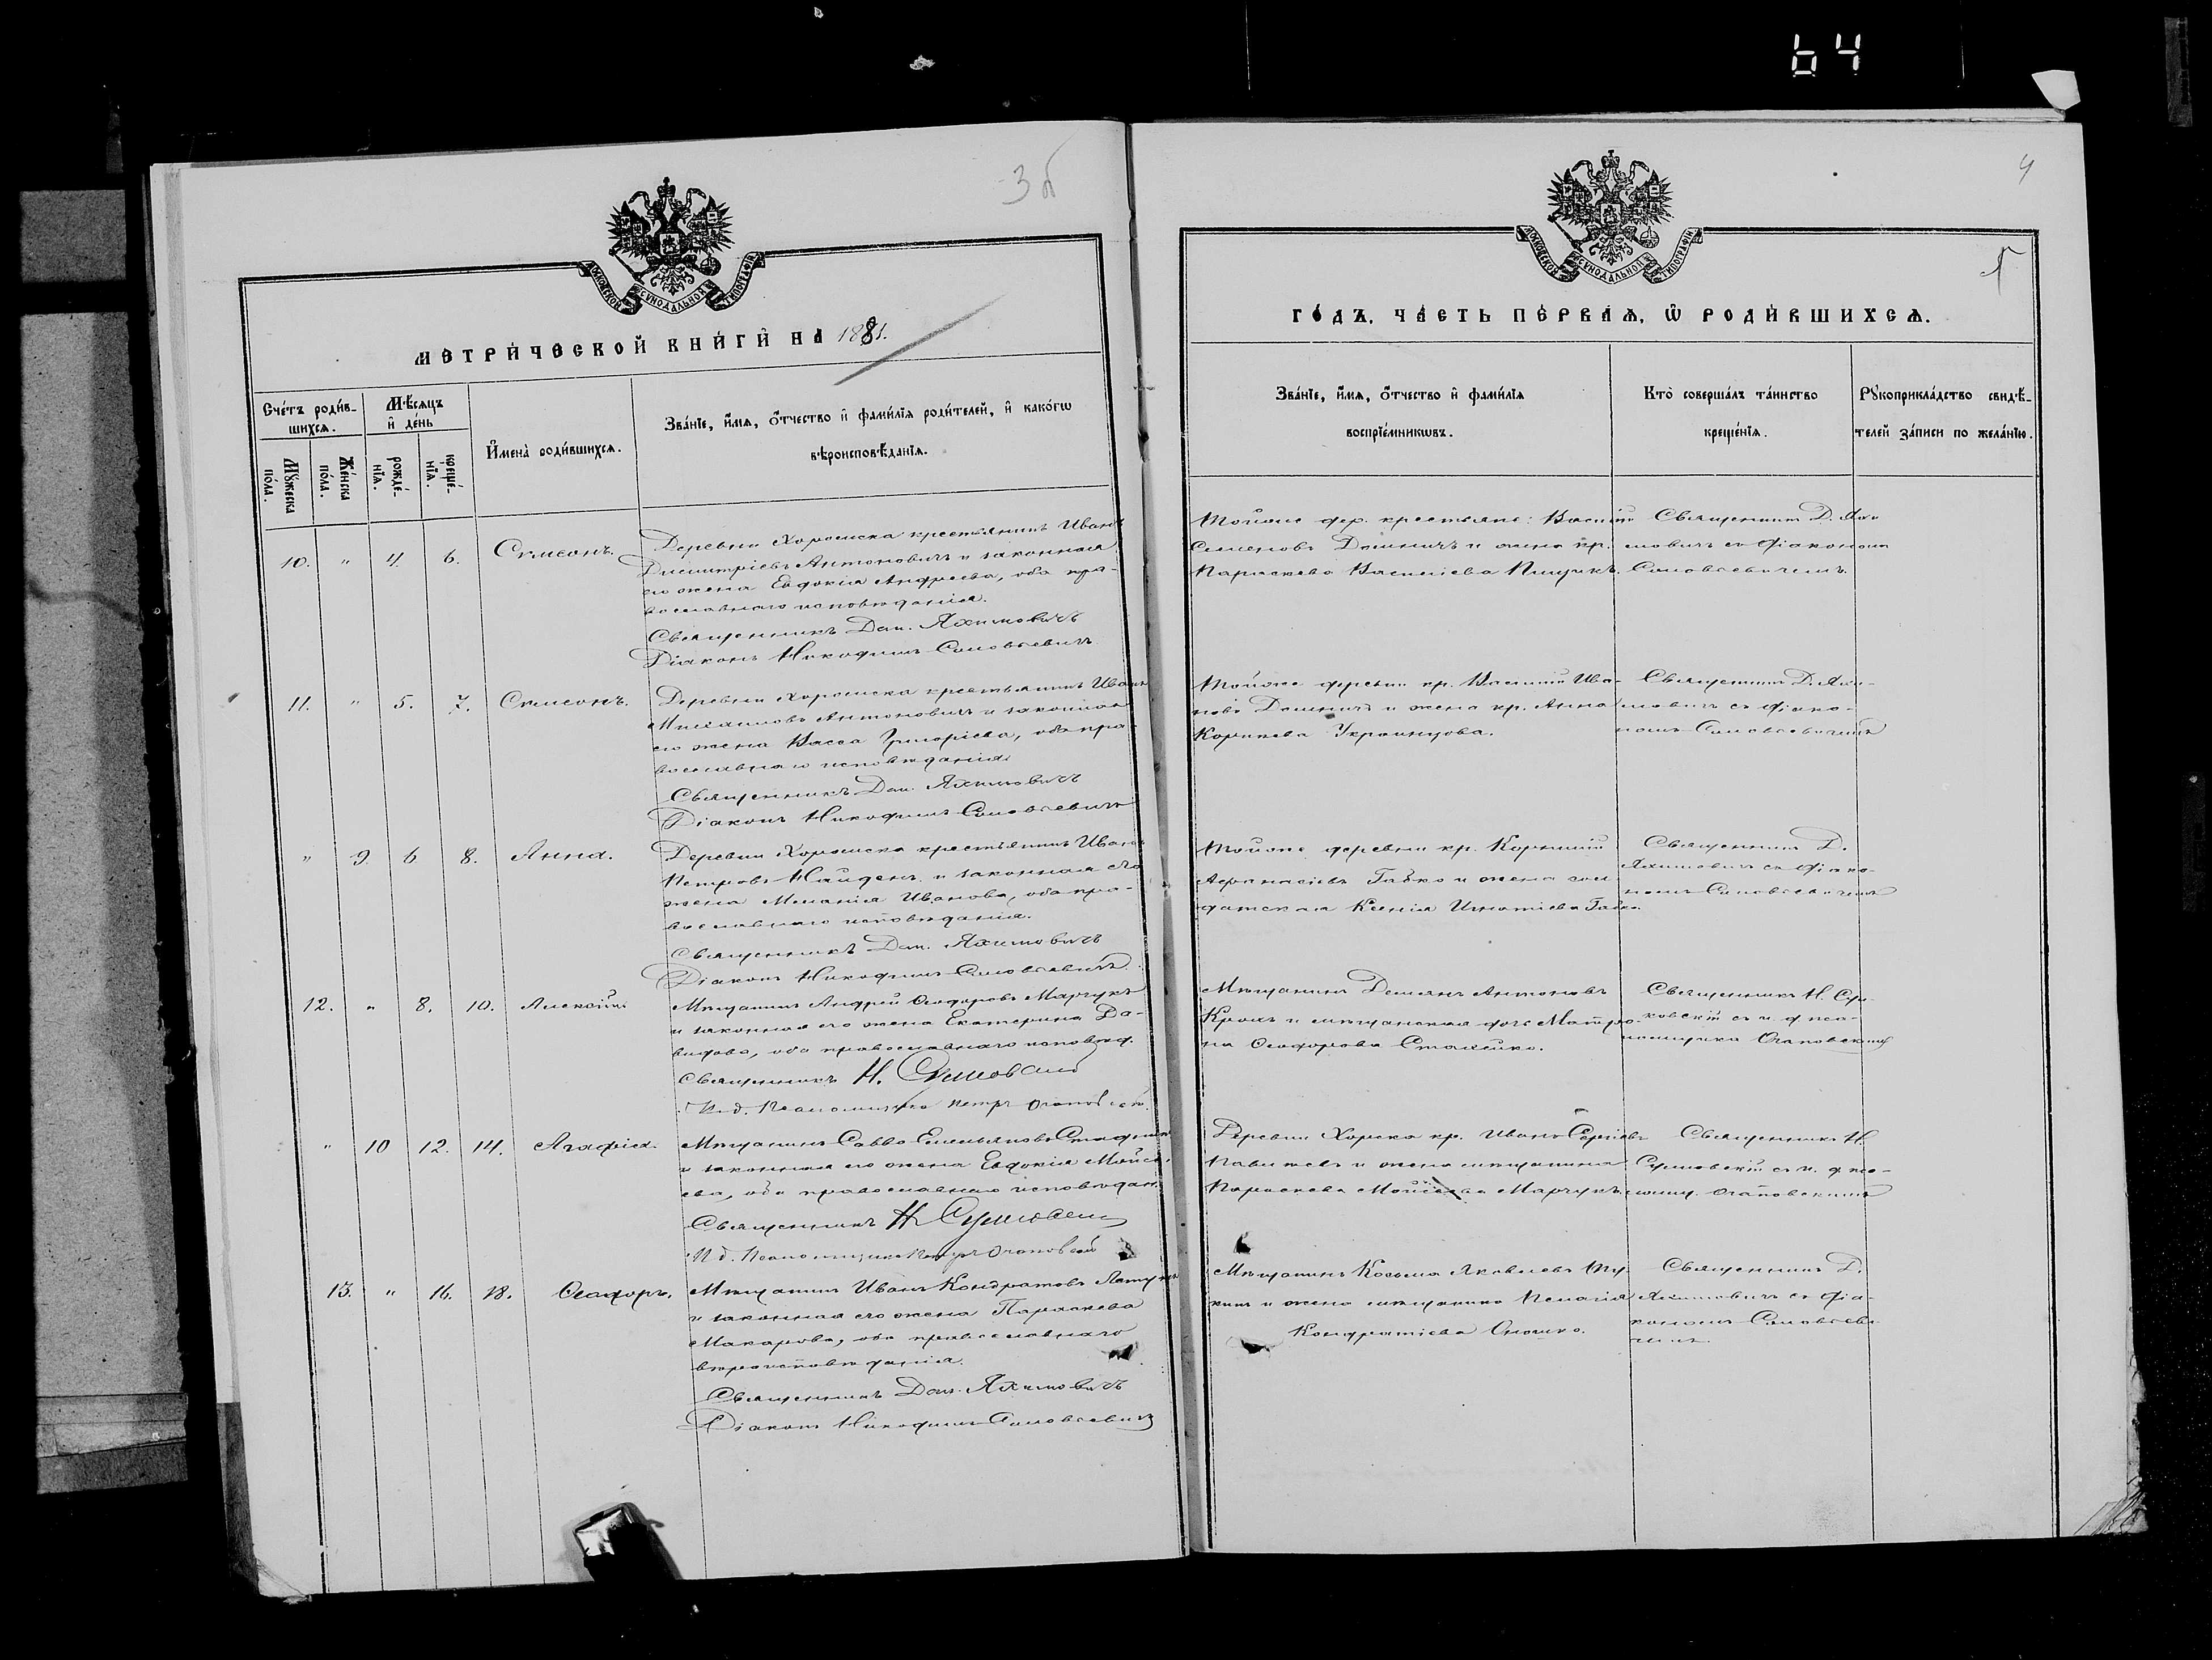 64
3 б
4
МОСКОВСКОЙ СѴНОДАЛЬНОЙ ТИПОГРАФІИ
МЕТРИ́ЧЕСКОЙ КНИ́ГИ НА 1881.
Сче́тъ роди́в-
шихся.
Мѣ́сяцъ
и де́нь
Мꙋ́жеска
по́ла.
Же́нска
по́ла.
рожде́-
нїѧ.
креще́-
нїѧ.
И҆мена̀ роди́вшихсѧ.
Зва́нїе, и҆́мѧ, ѻ҆́тчество и҆ фами́лїѧ роди́телей, и҆ како́гѡ
вѣроисповѣ́данїѧ.
10. " 4. 6. Симеонъ.
Деревни Хоромска крестьянинъ Иванъ
Димитріевъ Антоновичъ и законная
его жена Евдокія Андреева, оба пра-
вославнаго исповѣданія.
Священникъ Дан. Яхимовичъ
Діаконъ Никодимъ Соловьевичъ
11. " 5. 7. Симеонъ.
Деревни Хоромска крестьянинъ Иванъ
Михаиловъ Антоновичъ и законная
его жена Васса Григоріева, оба пра-
вославнаго исповѣданія
Священникъ Дан. Яхимовичъ
Діаконъ Никодимъ Соловьевичъ
" 9. 6 8. Анна.
Деревни Хоромска крестьянинъ Иванъ
Петровъ Найденъ и законная его
жена Меланія Иванова, оба пра-
вославнаго исповѣданія.
Священникъ Дан. Яхимовичъ
Діаконъ Никодимъ Соловьевичъ
12. " 8. 10. Алексій.
Мѣщанинъ Андрей Ѳеодоровъ Марчукъ
и законная его жена Екатерина Да-
видова, оба православнаго исповѣд.
Священникъ Н.
И. д. Псаломщика Петръ
" 10 12. 14. Агафія.
Мѣщанинъ Савва Емельяновъ
и законная его жена Евдокія Мойсе-
ева, оба православнаго исповѣдан.
Священникъ Н
И д. Псаломщика Петръ
13. " 16. 18. Ѳеодоръ.
Мѣщанинъ Иванъ Кондратовъ
и законная его жена Параскева
Макарова, оба православнаго
вѣроисповѣданія.
Священникъ Дан. Яхимовичъ
Діаконъ Никодимъ Соловьевичъ
МОСКОВСКОЙ СѴНОДАЛЬНОЙ ТИПОГРАФІИ
ГО́ДЪ, ЧА́СТЬ ПЕ́РВАѦ, Ѽ РОДИ́ВШИХСѦ.
Зва́нїе, и҆́мѧ, ѻ҆́тчество и҆ фами́лїѧ
воспрїе́мникѡвъ.
Кто̀ соверша́лъ та́инство
креще́нїѧ.
Рꙋкоприкла́дство свидѣ́-
телей за́писи по жела́нїю.
Тойже дер. крестьяне: Василій
Семеновъ Домничъ и жена кр.
Параскева Василіева Пищикъ.
Священникъ Д. Яхи
мовичъ съ діакономъ
Соловьевичемъ.
Тойже деревни кр. Василій Ива-
новъ Домничъ и жена кр. Анна
Корнѣева Украинцова.
Священникъ Д. Яхи-
мовичъ съ діако-
номъ Соловьевичемъ
Тойже деревни кр. Корнилій
Аѳанасіевъ Габко и жена сол
датская Ксенія Игнатіева Габко.
Священникъ Д.
Яхимовичъ съ діако-
номъ Соловьевичемъ
Мѣщанинъ Демянъ Антоновъ
Кроль и мѣщанская дочь Матро-
на Ѳеодорова Стахейко.
Священникъ Н.
съ и. д. пса-
ломщика
Деревни Хорска кр. Иванъ Сергіевъ
и жена мѣщанина
Параскева Мойсеева Марчукъ.
Священникъ Н.
съ и. д. пса-
ломщ.
Мѣщанинъ Козьма Яковлевъ
и жена мѣщанина Пелагія
Кондратіева Оношко.
Священникъ Д.
Яхимовичъ съ діа-
кономъ Соловьеви-
чемъ.